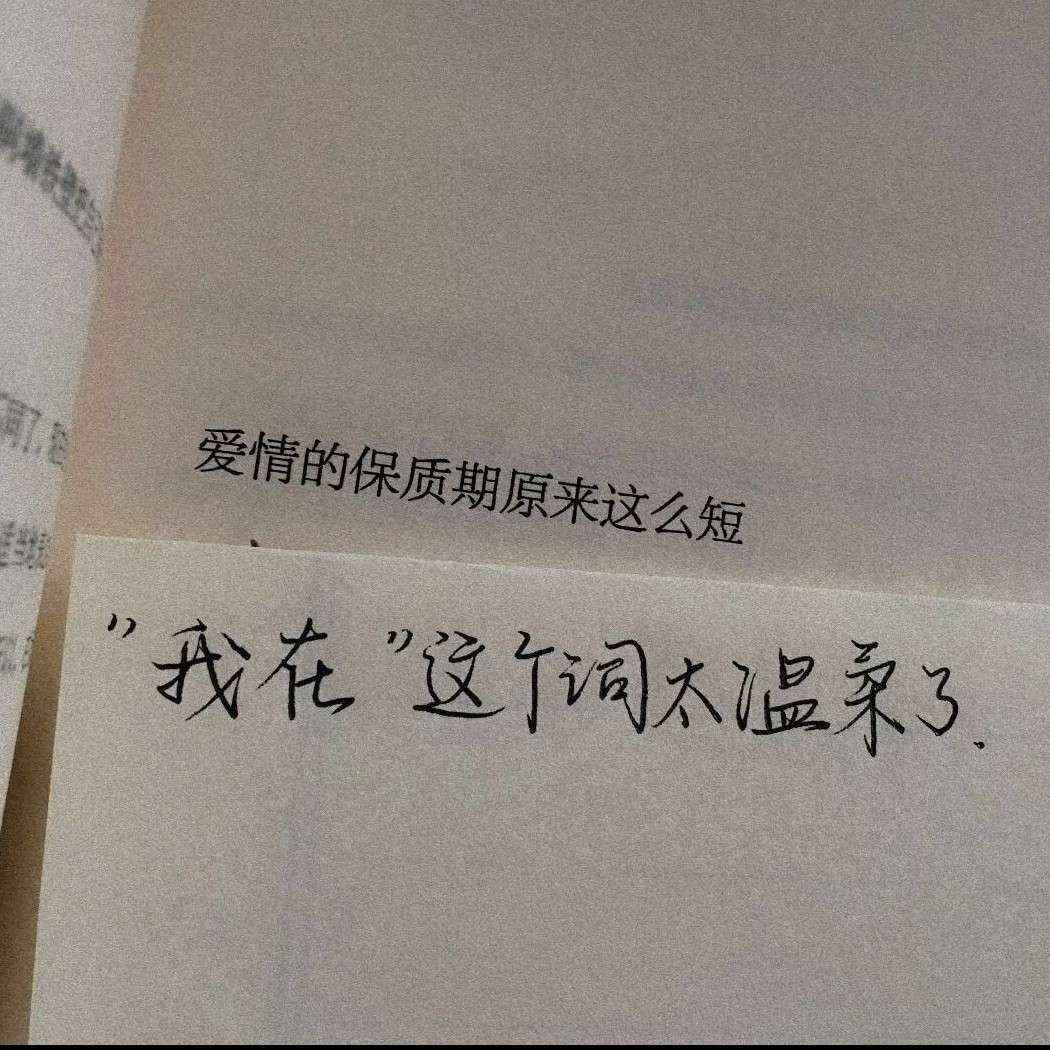 爱情的保质期原来这么短
"我在"这个词太温柔了.